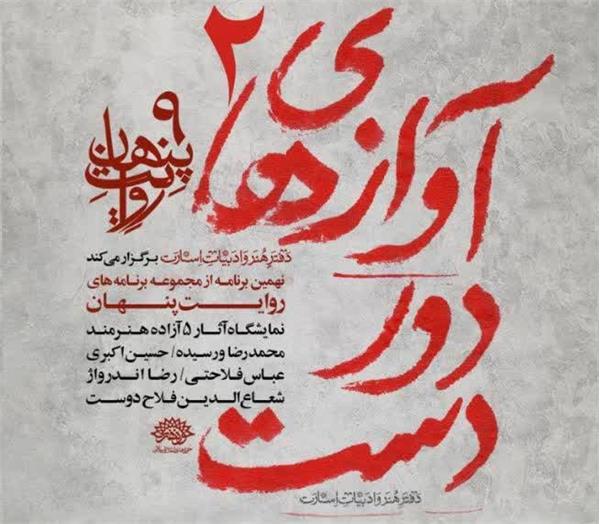 آوازهای
دور
دست
۲
روایت پنهان ۹
دفتر هنر و ادبیات اسارت برگزار می‌کند
نهمین برنامه از مجموعه برنامه‌های
روایت پنهان
نمایشگاه آثار ۵ آزاده هنرمند
محمدرضا ورسیده / حسین اکبری
عباس فلاحتی / رضا اندرواژ
شعاع‌الدین فلاح‌دوست
دفتر هنر و ادبیات اسارت